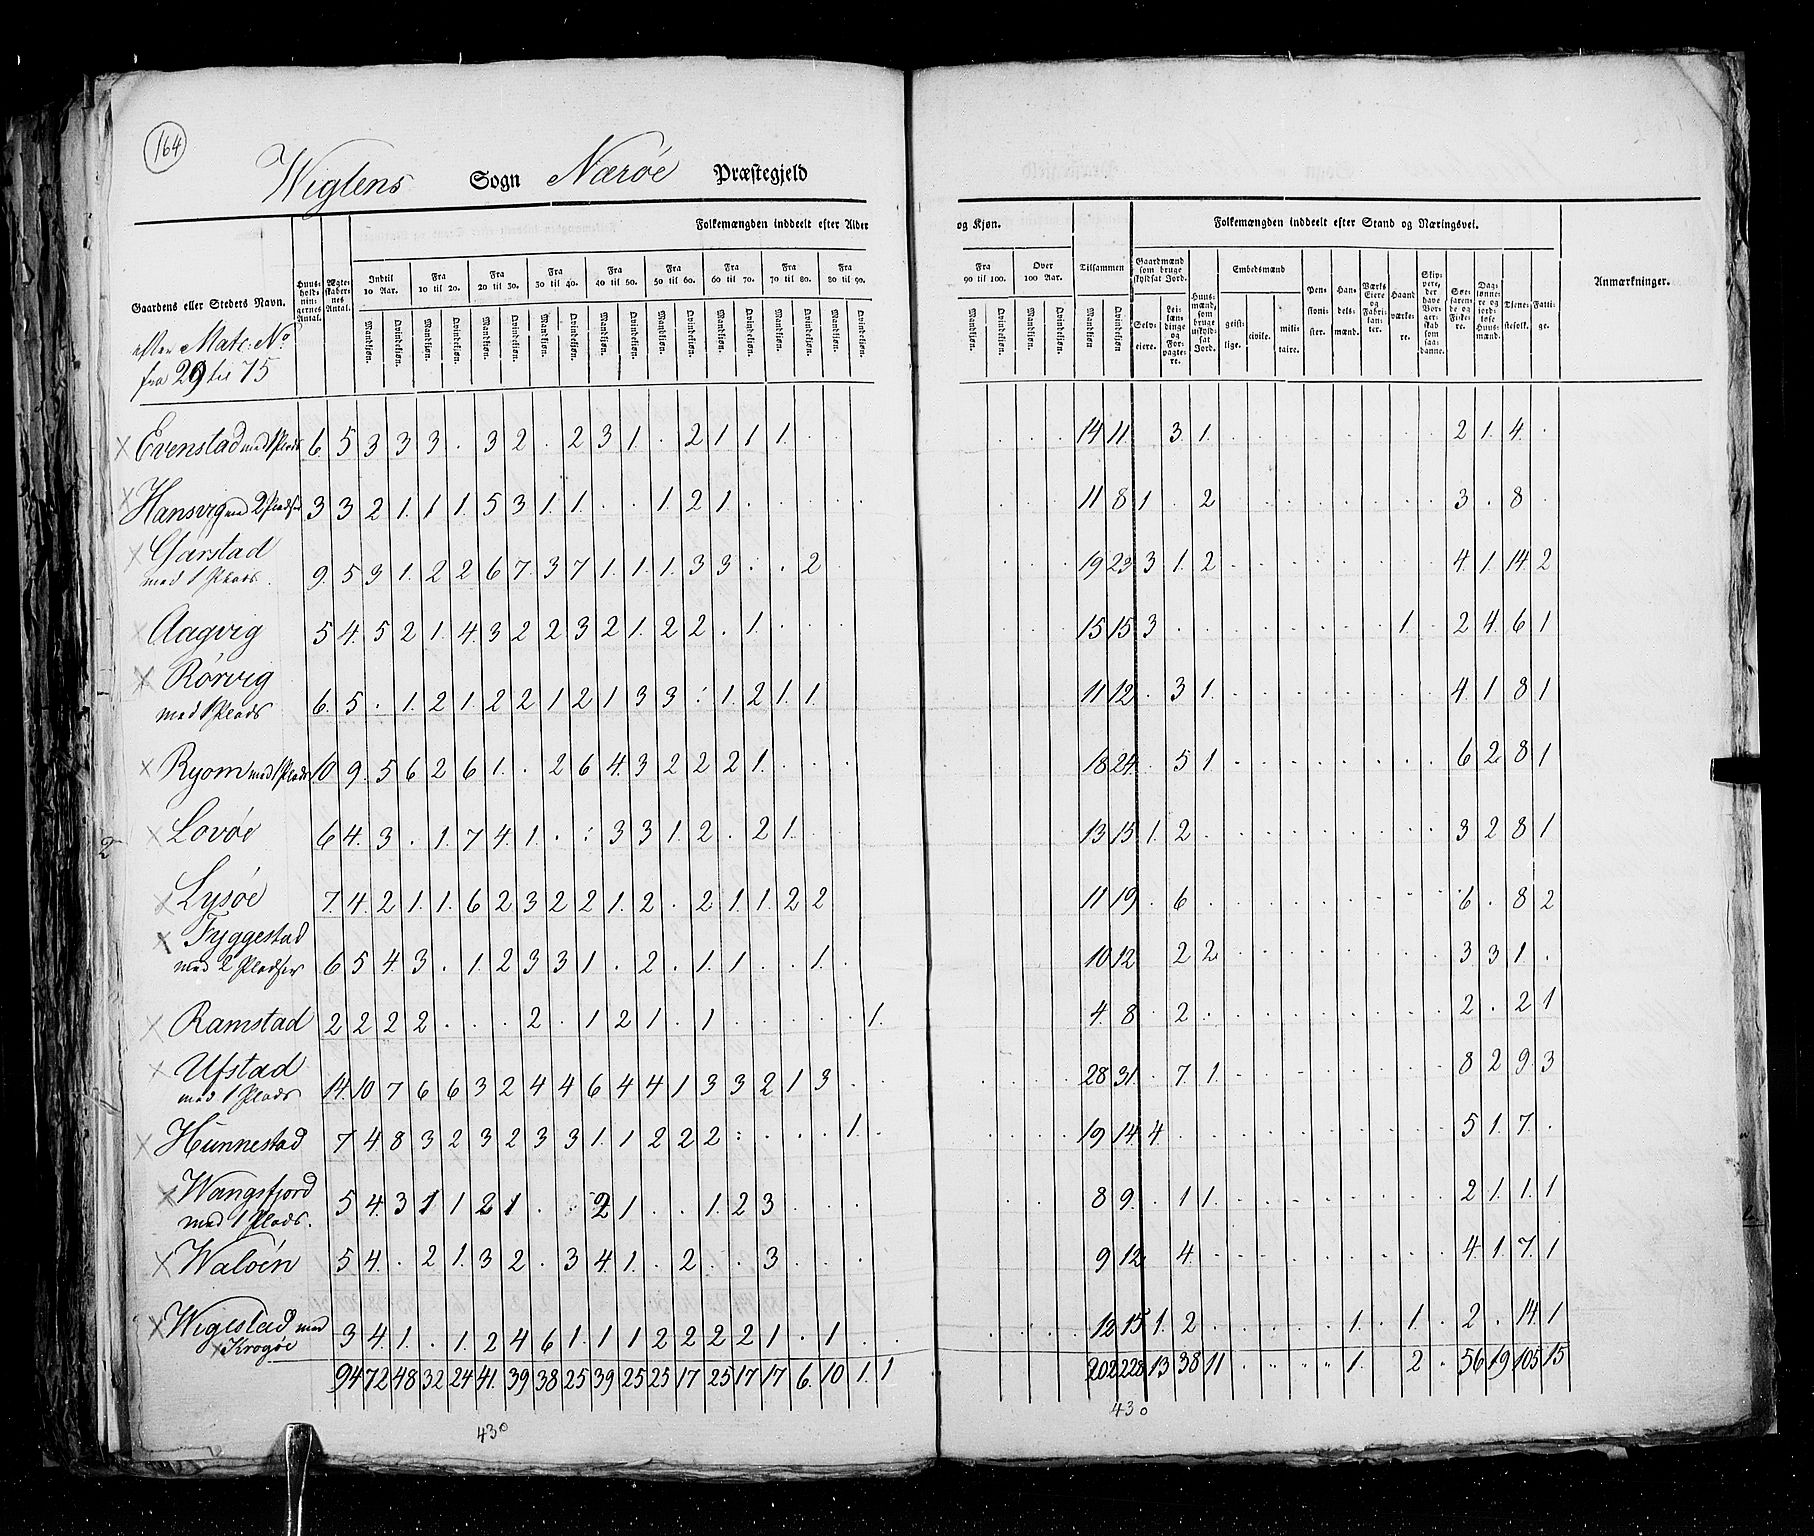 164
Wiglens Sogn Nærøe Præstegjeld
Folkemængden inddeelt efter Alder og Kjøn. Tilsammen Folkemængden inddeelt efter Stand og Næringsvei. Anmærkninger.
Gaardens eller Steders Navn.
Huusholdningernes Antal. Ægteskabernes Antal.
Indtil 10 Aar. Fra 10 til 20. Fra 20 til 30. Fra 30 til 40. Fra 40 til 50. Fra 50 til 60. Fra 60 til 70. Fra 70 til 80. Fra 80 til 90. Fra 90 til 100. Over 100 Aar.
Mandkjøn. Qvindekjøn.
Gaardmænd som bruge skyldsat Jord. Selveiere. Leilændinge og Forpagtere. Huusmænd, som bruge uskyldsat Jord. Embedsmænd geistlige. civile. militaire. Pensionister. Handelsmænd. Værkseiere og Fabrikanter. Haandværkere. Skippere, der have Borgerskab som saadanne. Søefarende og Fiskere. Daglønnere og jordløse Huusmænd. Tjenestefolk. Fattige.
efter Matr. No
fra 29 til 75
Evenstad med 1 Plads 6 5 3 3 3 . 3 2 . 2 3 1. . 2 1 1 1. . . 14 11 3 1. 2 1. 4 .
Hansvig med 2 Pladser 3 3 2 1. 1 1. 5 3 1. 1. . . 1. 2 1. . . . . 11 8 1 . 2 3 . 8 .
Garstad
med 1 Plads. 9. 5 3 1. 2 2 6 7. 3 7 1. 1. 1. 3 3 . . 2 19 23 3 1. 2 4. 1. 14. 2
Aagvig 5 4. 5 2 1. 4. 3 2 2 3 2 1. 2 2 . 1. . . 15 15 3 1. . 2 4 6 1
Rørvig
med 1 Plads 6. 5 . 1. 2 1. 2 2 1 2 1 3 3 . 1. 2 1. 1. 11 12 . 3 1. 4 1 8 1
Ryom med 1 Plads 10 9. 5 6 2 6 1. . 2 6 4. 3 2 2 2 1. . . 18 24 . 5 1 6 2 8 1
Lovøe 6 4. 3 . 1. 7 4. 1. . . 3 3 1. 2 . 2 1. . 13 15 1. 2 3 2 8 1
Lysøe 7. 4. 2 1. 1. 6 2 3 2 2 1. 2 . 2 1. 1. 2 2 11 19 . 6 6 . 8 2
Fyggestad
med 2 Pladser 6 5 4. 3 . 1. 2 3 3 1 . 2 . 1. 1. . . 1. 10 12 2 2 3 3 1 .
Ramstad 2 2 2 2 . . . 2 . 1 2 1. . 1 . . . . 1. 4. 8 . 2 2 . 2 1
Ufstad
med 1 Plads 14 10 7 6 6 3 2 4 4 6 4 4 1 3 3 2 1 3 . . 28 31. . 7. 1. 8 2 9. 3
Hunnestad 7 4 8 3 2 3 2 3 3 1. 1 2 2 2 . . . . 1. . 19 14 4 5 1. 7. .
Wangsfjord
med 1 Plads. 5 4. 3 1 1 2 1 . . 2 1 . . 1. 2 3 . . . 8 9. . 1 1. 2 1. 1. 1
Waløen 5 4. . 2 1. 3 2 . 3 4. 1. . 2 . . 3 . . . 9 12 . 4. 4. 1. 7. 1
Wigestad med
Krogøe 3 4. 1. . 1. 2 4 6 1. 1 1 2 2 2 2 1 . 1. . . 12 15 1. 2 1. . 1. 2 . 14. 1
94 72 48 32 24 41. 39 38 25 39 25 25 17 25 17 17 6. 10 1. 1 202 228 13 38 11 1. 2 56 19 105 15
430 430
2